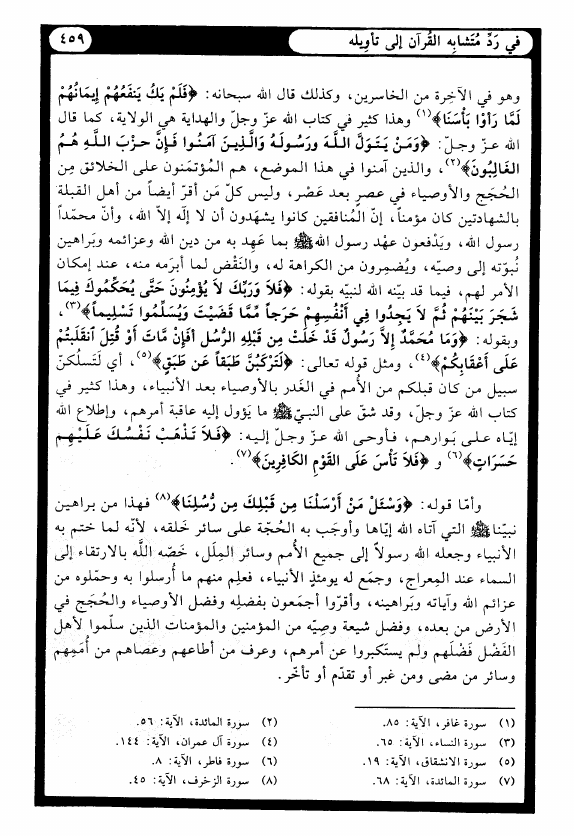 في رَدِّ مُتَشابِه القُرآن إلى تأوِيله
٤٥٩
وهو في الآخِرة من الخاسرين، وكذلك قال الله سبحانه: ﴿فَلَمْ يَكُ يَنفَعُهُمْ إِيمَانُهُمْ
لَمَّا رَأَوْا بَأْسَنَا﴾(١) وهذا كثير في كتاب الله عزّ وجلّ والهداية هي الولاية، كما قال
الله عزّ وجلّ: ﴿وَمَنْ يَتَوَلَّ اللَّهَ وَرَسُولَهُ وَالَّذِينَ آمَنُوا فَإِنَّ حزْبَ اللَّهِ هُمُ
الغَالِبُونَ﴾(٢)، والذين آمنوا في هذا الموضع، هم المُؤتمَنون على الخلائق مِن
الحُجَج والأوصياء في عصرٍ بعد عَصْر، وليس كلّ مَن أقرّ أيضاً من أهل القبلة
بالشهادتين كان مؤمناً، إنّ المُنافقين كانوا يشهَدون أن لا إله إلاّ الله، وأنّ محمّداً
رسول الله، ويَدْفعون عهْد رسول الله ﷺ بما عَهِد به من دين الله وعزائمه وبَراهين
نُبوّته إلى وصيّه، ويُضمِرون من الكراهة له، والنَقْض لما أبرَمه منه، عند إمكان
الأمر لهم، فيما قد بيّنه الله لنبيّه بقوله: ﴿فَلاَ وَرَبِّكَ لاَ يُؤْمِنُونَ حَتَّى يُحَكِّمُوكَ فِيمَا
شَجَرَ بَيْنَهُمْ ثُمَّ لاَ يَجِدُوا فِي أَنْفُسِهِمْ حَرَجاً مِّمَّا قَضَيْتَ وَيُسَلِّمُوا تَسْلِيماً﴾(٣)،
وبقوله: ﴿وَمَا مُحَمَّدٌ إِلاَّ رَسُولٌ قَدْ خَلَتْ مِن قَبْلِهِ الرُّسُل أَفَإِنْ مَّاتَ أَوْ قُتِلَ انقَلَبتُمْ
عَلَى أَعْقَابِكُمْ﴾(٤)، ومثل قوله تعالى: ﴿لَتَرْكَبُنَّ طَبَقاً عَن طَبَقٍ﴾(٥)، أي لَتَسلُكنّ
سبيل من كان قبلكم من الأُمم في الغَدر بالأوصياء بعد الأنبياء، وهذا كثير في
كتاب الله عزّ وجلّ، وقد شقّ على النبيّ ﷺ ما يَؤول إليه عاقبة أمرهم، وإطلاع الله
إيّاه على بَوارهم، فأوحى الله عزّ وجلّ إليه: ﴿فَلاَ تَذْهَبْ نَفْسُكَ عَلَيْهِمْ
حَسَرَاتٍ﴾(٦) و ﴿فَلاَ تَأْسَ عَلَى القَوْمِ الكَافِرِينَ﴾(٧).
وأمّا قوله: ﴿وَسْئَلْ مَنْ أَرْسَلْنَا مِن قَبْلِكَ مِن رُسُلِنَا﴾(٨) فهذا من براهين
نبيّنا ﷺ التي آتاه الله إيّاها وأوجَب به الحُجّة على سائر خَلقه، لأنّه لما ختم به
الأنبياء وجعله الله رسولاً إلى جميع الأُمم وسائر المِلَل، خَصّه اللَّه بالارتقاء إلى
السماء عند المِعراج، وجمَع له يومئذٍ الأنبياء، فعلِم منهم ما أُرسلوا به وحمّلوه من
عزائم الله وآياته وبَراهينه، وأقرّوا أجمَعون بفضلِه وفضل الأوصياء والحُجَج في
الأرض من بعده، وفضل شيعة وصِيّه من المؤمنين والمؤمنات الذين سلّموا لأهل
الفَضْل فَضْلَهم ولم يستَكبروا عن أمرهم، وعرف من أطاعهم وعصاهم من أُمَمِهم
وسائر من مضى ومن غبر أو تقدّم أو تأخّر.
(١) سورة غافر، الآية: ٨٥.
(٢) سورة المائدة، الآية: ٥٦.
(٣) سورة النساء، الآية: ٦٥.
(٤) سورة آل عمران، الآية: ١٤٤.
(٥) سورة الانشقاق، الآية: ١٩.
(٦) سورة فاطر، الآية: ٨.
(٧) سورة المائدة، الآية: ٦٨.
(٨) سورة الزخرف، الآية: ٤٥.